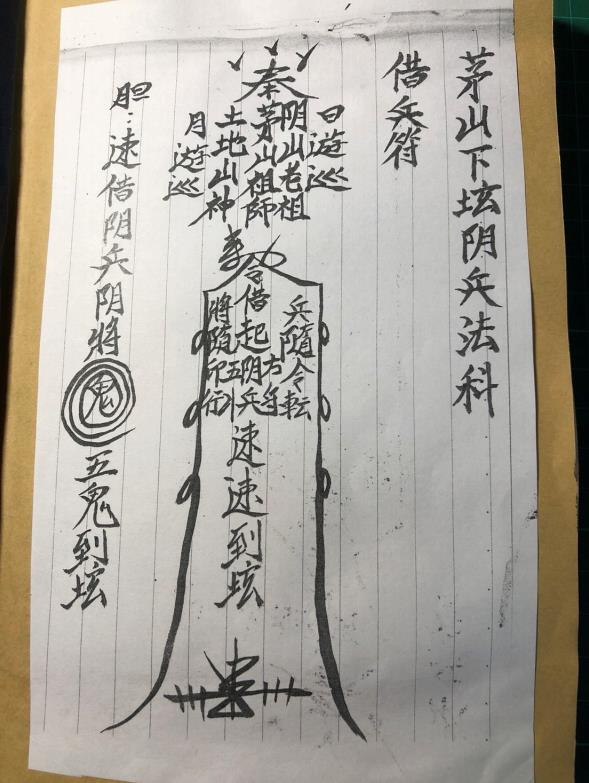 茅山下坛阴兵法科
借兵符
奉
日遊巡
阴山老祖
茅山祖師
土地山神
月遊巡
令
兵隨令転
方
借起阴兵
五
將隨印行
速速到坛
胆：速借阴兵阴將 鬼 五鬼到坛